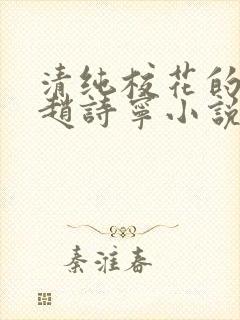 清纯校花的
趙詩寧小說
秦淮春